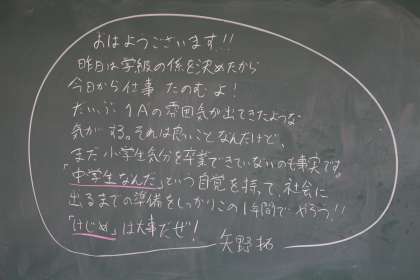 おはようございます!!
昨日は学級の係を決めたから
今日から仕事 たのむよ!
だいぶ 1Aの雰囲気が出てきたような
気がする。それは良いことなんだけど、
まだ小学生気分を卒業できていないのも事実です。
「中学生なんだ」という自覚を持って、社会に
出るまでの準備をしっかりこの1年間で やろう!!
「けじめ」は大事だぜ!
矢野 拓